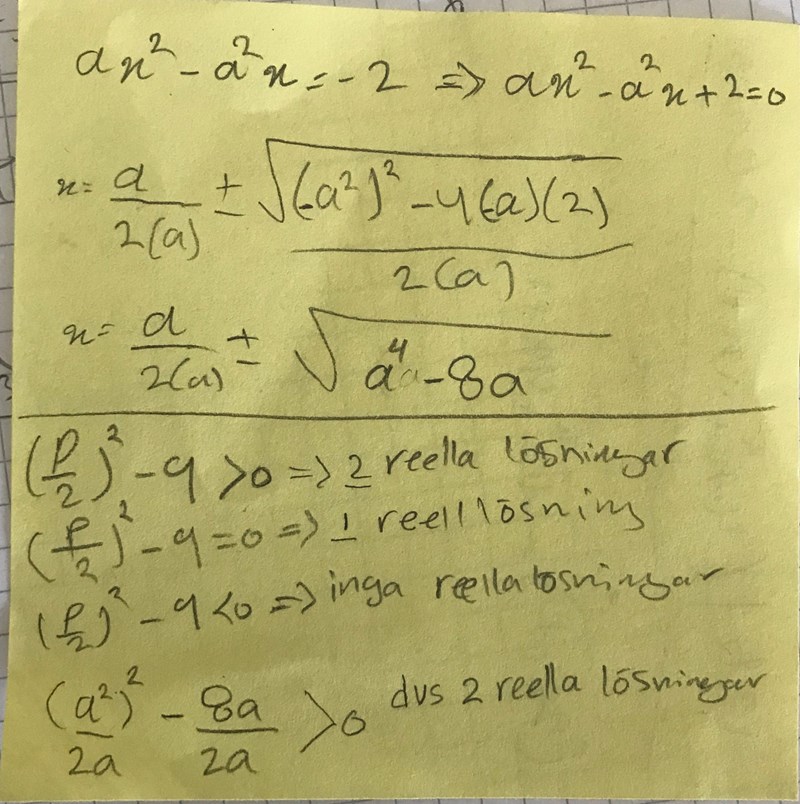 ax² - a²x = -2 => ax² - a²x + 2 = 0
x = a/2(a) ± √((-a²)² - 4(a)(2))/2(a)
x = a/2(a) ± √(a⁴ - 8a)
(p/2)² - q > 0 => 2 reella lösningar
(p/2)² - q = 0 => 1 reell lösning
(p/2)² - q < 0 => inga reella lösningar
(a²/2a)² - 8a/2a > 0 dvs 2 reella lösningar